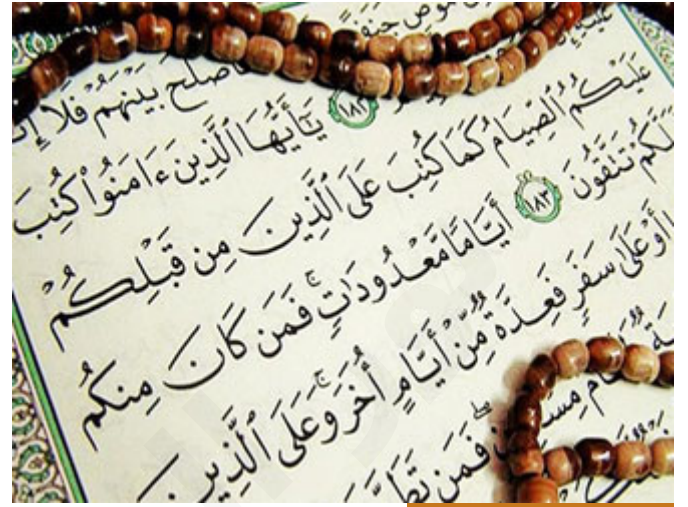 مُّوصٍ جَنَفًا
فَأَصْلَحَ بَيْنَهُمْ فَلَا إِثْمَ
١٨٢ يَٰٓأَيُّهَا ٱلَّذِينَ ءَامَنُوا۟ كُتِبَ
عَلَيْكُمُ ٱلصِّيَامُ كَمَا كُتِبَ عَلَى ٱلَّذِينَ مِن قَبْلِكُمْ
لَعَلَّكُمْ تَتَّقُونَ ١٨٣ أَيَّامًا مَّعْدُودَٰتٍ ۚ فَمَن كَانَ مِنكُم
أَوْ عَلَىٰ سَفَرٍ فَعِدَّةٌ مِّنْ أَيَّامٍ أُخَرَ ۚ وَعَلَى ٱلَّذِينَ
طَعَامُ فَمَن